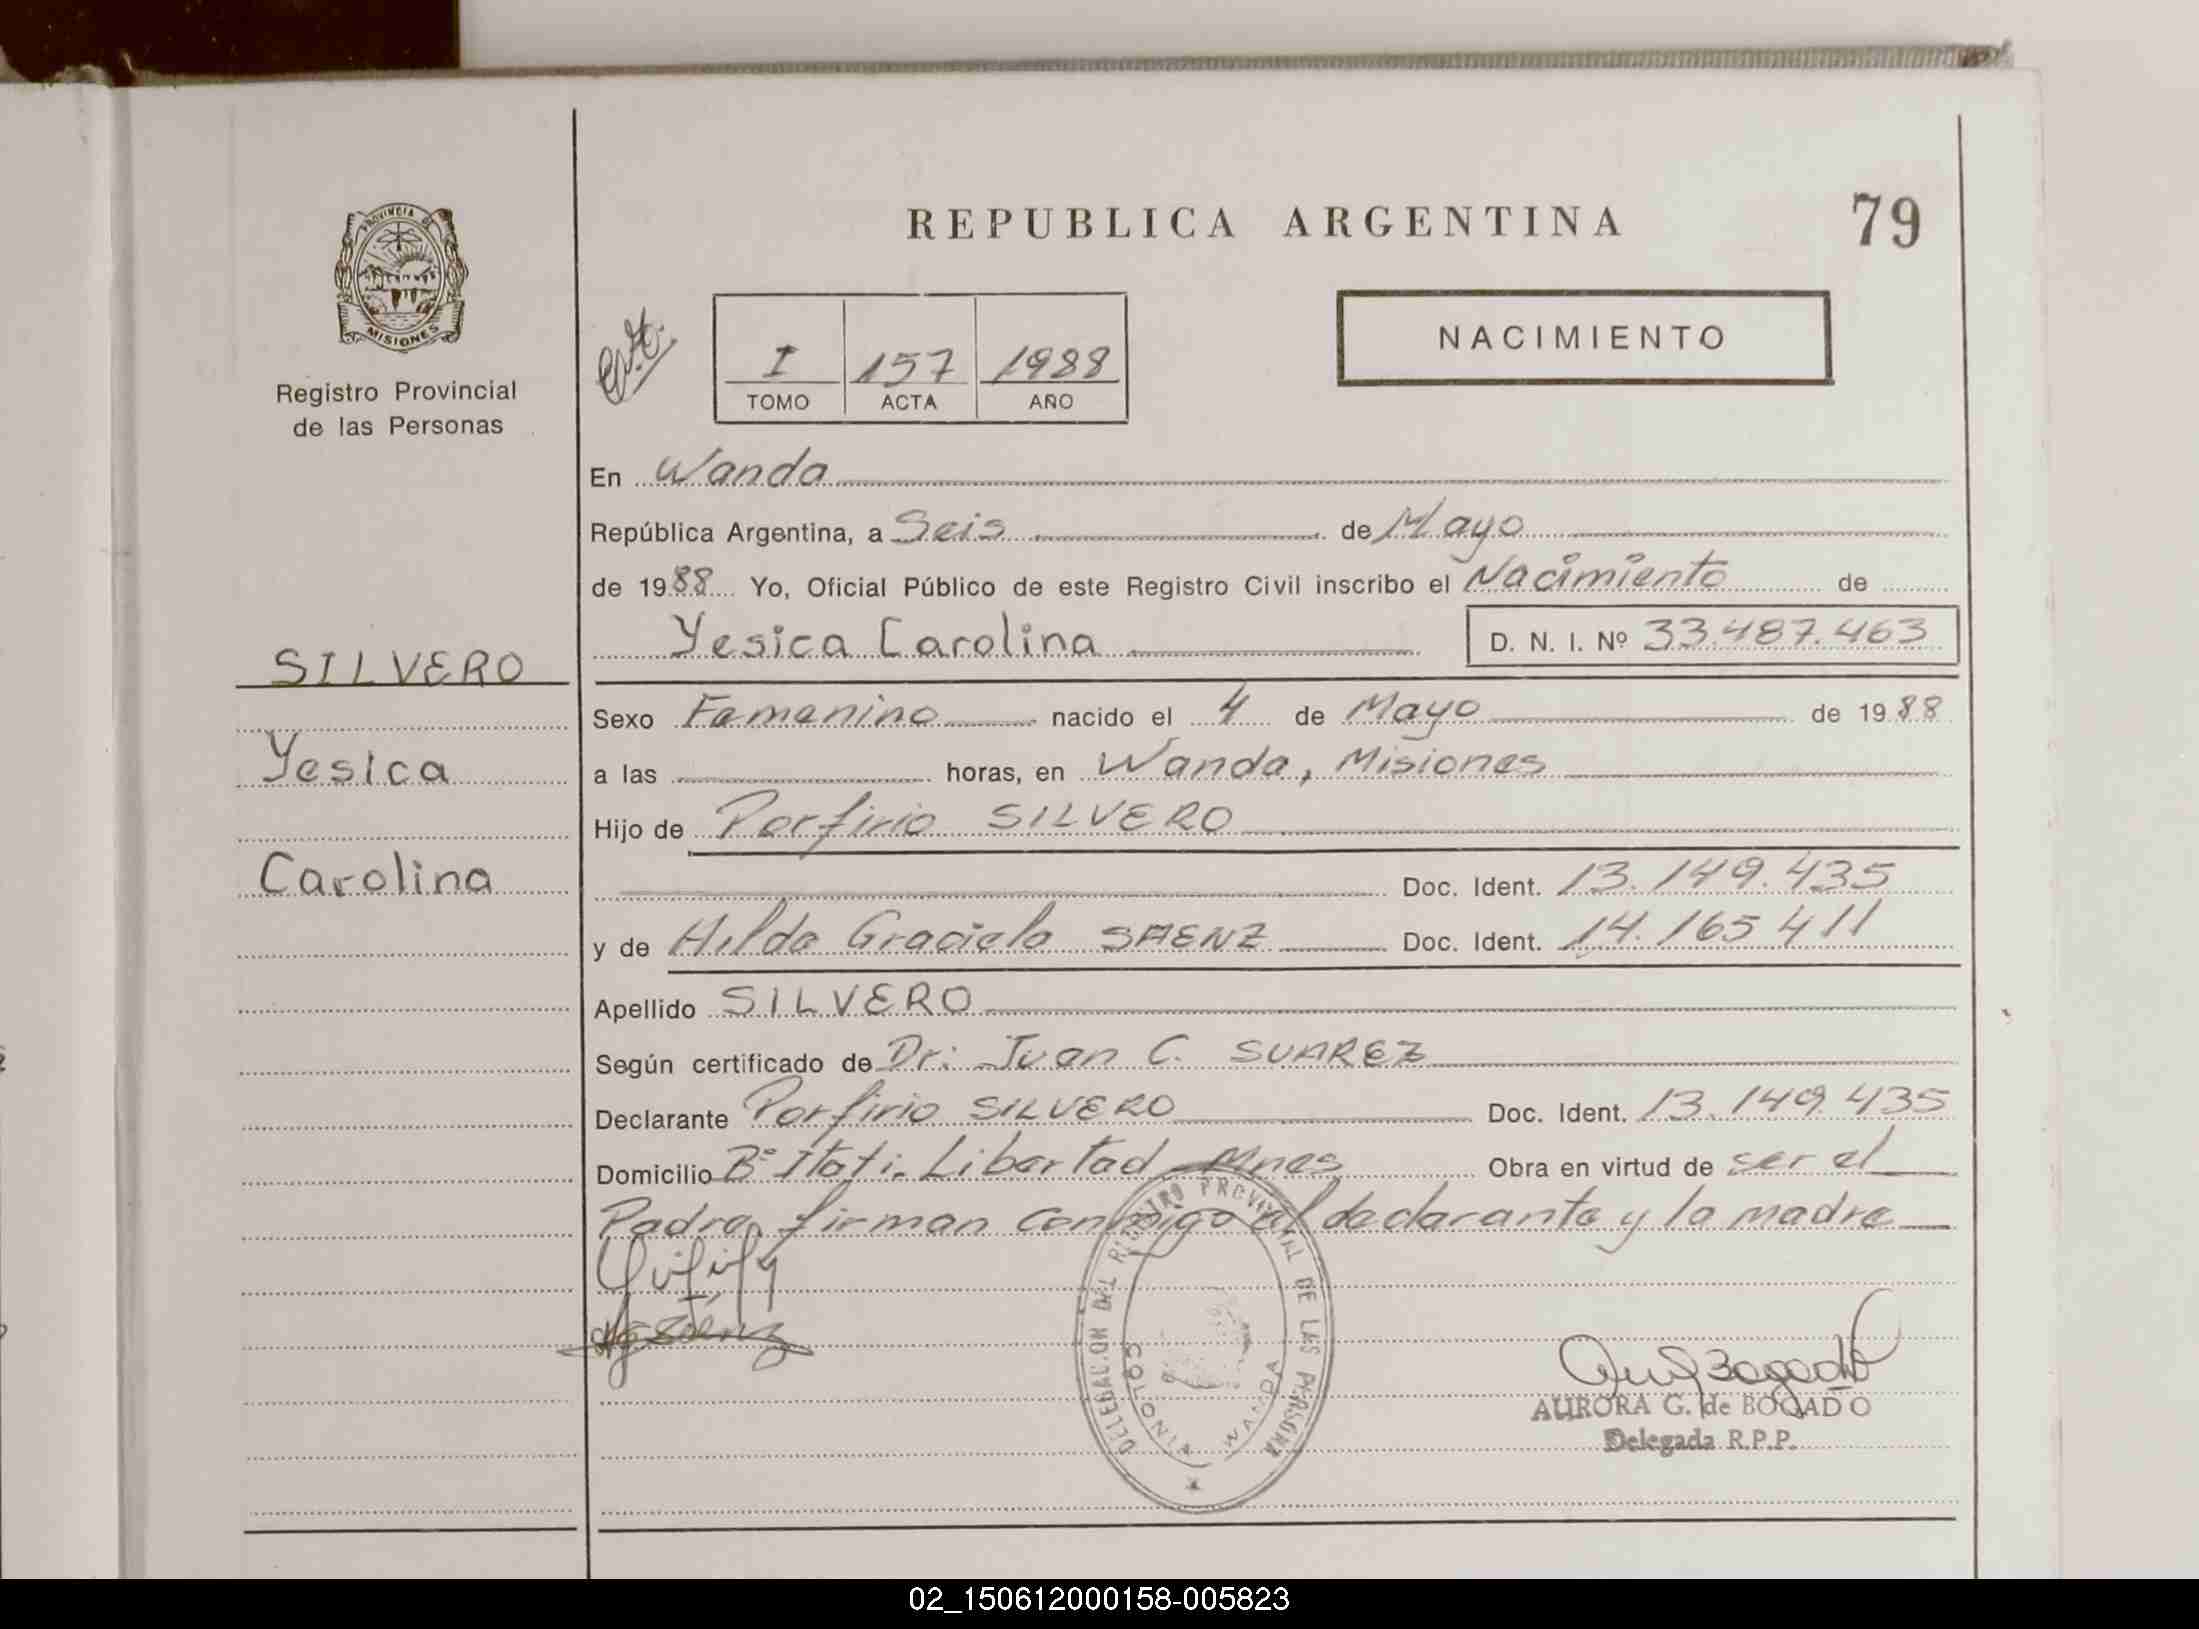 REPUBLICA ARGENTINA
79
PROVINCIA DE
MISIONES
Registro Provincial
de las Personas
I 157 1988
TOMO ACTA AÑO
NACIMIENTO
En Wanda
República Argentina, a Seis de Mayo
de 1988 Yo, Oficial Público de este Registro Civil inscribo el Nacimiento de
Yesica Carolina D. N. I. Nº 33.487.463
SILVERO
Yesica
Carolina
Sexo Femenino nacido el 4 de Mayo de 1988
a las horas, en Wanda, Misiones
Hijo de Porfirio SILVERO
Doc. Ident. 13.149.435
y de Hilda Graciela SAENZ Doc. Ident. 14.165 411
Apellido SILVERO
Según certificado de Dr: Juan C. SUAREZ
Declarante Porfirio SILVERO Doc. Ident. 13.149 435
Domicilio Bº Itati. Libertad Mnes Obra en virtud de ser el
Padre, firman conmigo el declarante y la madre
DELEGACION DEL REGISTRO PROVINCIAL DE LAS PERSONAS
WANDA
AURORA G. de BOGADO
Delegada R.P.P.
02_150612000158-005823